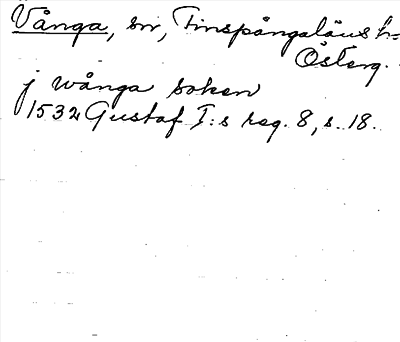 Vånga, sn, Finspångaläns h:
Österg.
j wånga soken
1532 Gustaf I:s reg. 8, s. 18.